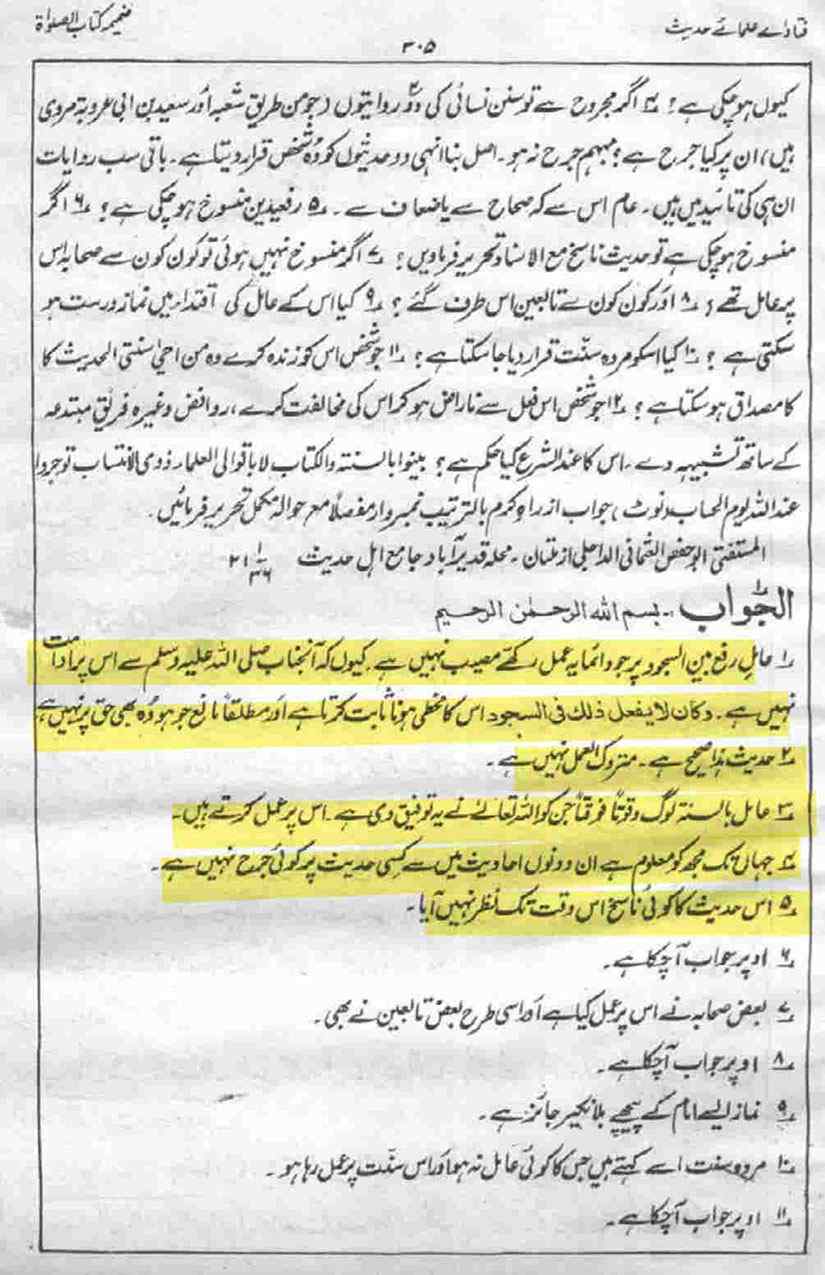 فتاوے علمائے حدیث
ضمیمہ کتاب الصلوٰۃ
۳۰۵
کیوں ہو چکی ہے؟ ۴؎ اگر مجروح ہے تو سنن نسائی کی دو روایتوں (جو من طریق شعبہ اور سعید بن ابی عروبۃ مروی
ہیں) ان پر کیا جرح ہے؟ مبہم جرح نہ ہو۔ اصل بنا انہی دو حدیثوں کو وہ شخص قرار دیتا ہے۔ باقی سب روایات
ان ہی کی تائید میں ہیں۔ عام اس سے کہ صحاح سے یا ضعاف سے۔ ۵؎ رفعیدین منسوخ ہو چکی ہے؟ ۶؎ اگر
منسوخ ہو چکی ہے تو حدیث ناسخ مع الاسناد تحریر فرماویں؟ ۷؎ اگر منسوخ نہیں ہوئی تو کون کون سے صحابہ اس
پر عامل تھے؟ ۸؎ اور کون کون سے تابعین اس طرف گئے؟ ۹؎ کیا اس کے عامل کی اقتداء میں نماز درست ہو
سکتی ہے؟ ۱۰؎ کیا اسکو مردہ سنّت قرار دیا جا سکتا ہے؟ ۱۱؎ جو شخص اس کو زندہ کرے وہ من احیٰ سنتی الحدیث کا
کا مصداق ہو سکتا ہے؟ ۱۲؎ جو شخص اس فعل سے ناراض ہو کر اس کی مخالفت کرے، روافض وغیرہ فریق مبتدعہ
کے ساتھ تشبیہہ دے۔ اس کا عند الشرع کیا حکم ہے؟ بینوا بالسنتہ والکتاب لا باقوالی العلماء ذوی الانتساب توجروا
عند اللہ لیوم الحساب (نوٹ) جواب از راہ کرم بالترتیب نمبروار مفصلاً مع حوالہ مکمل تحریر فرمائیں۔
المستفتی ابو حفص العثمانی الداجلی از ملتان۔ محلہ قدیر آباد جامع اہل حدیث
الجواب۔ بسم اللہ الرحمٰن الرحیم
۱؎ عامل رفع بین السجود پر جو دائماً یہ عمل رکھے مصیب نہیں ہے۔ کیوں کہ آنجناب صلی اللہ علیہ وسلم سے اس پر مداومت
نہیں ہے۔ وکان لا یفعل ذلک فی السجود اس کا مخطی ہونا ثابت کرتا ہے اور مطلقاً مانع جو ہو وہ بھی حق پر نہیں ہے
۲؎ حدیث ہذا صحیح ہے۔ متروک العمل نہیں ہے۔
۳؎ عامل بالسنتہ لوگ وقوتاً فوقتاً جن کو اللہ تعالےٰ نے یہ توفیق دی ہے۔ اس پر عمل کرتے ہیں۔
۴؎ جہاں تک مجھ کو معلوم ہے ان دونوں احادیث میں سے کسی حدیث پر کوئی جرح نہیں ہے۔
۵؎ اس حدیث کا کوئی ناسخ اس وقت تک نظر نہیں آیا۔
۶؎ اوپر جواب آ چکا ہے۔
۷؎ بعض صحابہ نے اس پر عمل کیا ہے اور اسی طرح بعض تابعین نے بھی۔
۸؎ اوپر جواب آ چکا ہے۔
۹؎ نماز ایسے امام کے پیچھے بلا نکیر جائز ہے۔
۱۰؎ مردہ سنت اسے کہتے ہیں جس کا کوئی عامل نہ ہو اور اس سنّت پر عمل رہا ہو۔
۱۱؎ اوپر جواب آ چکا ہے۔